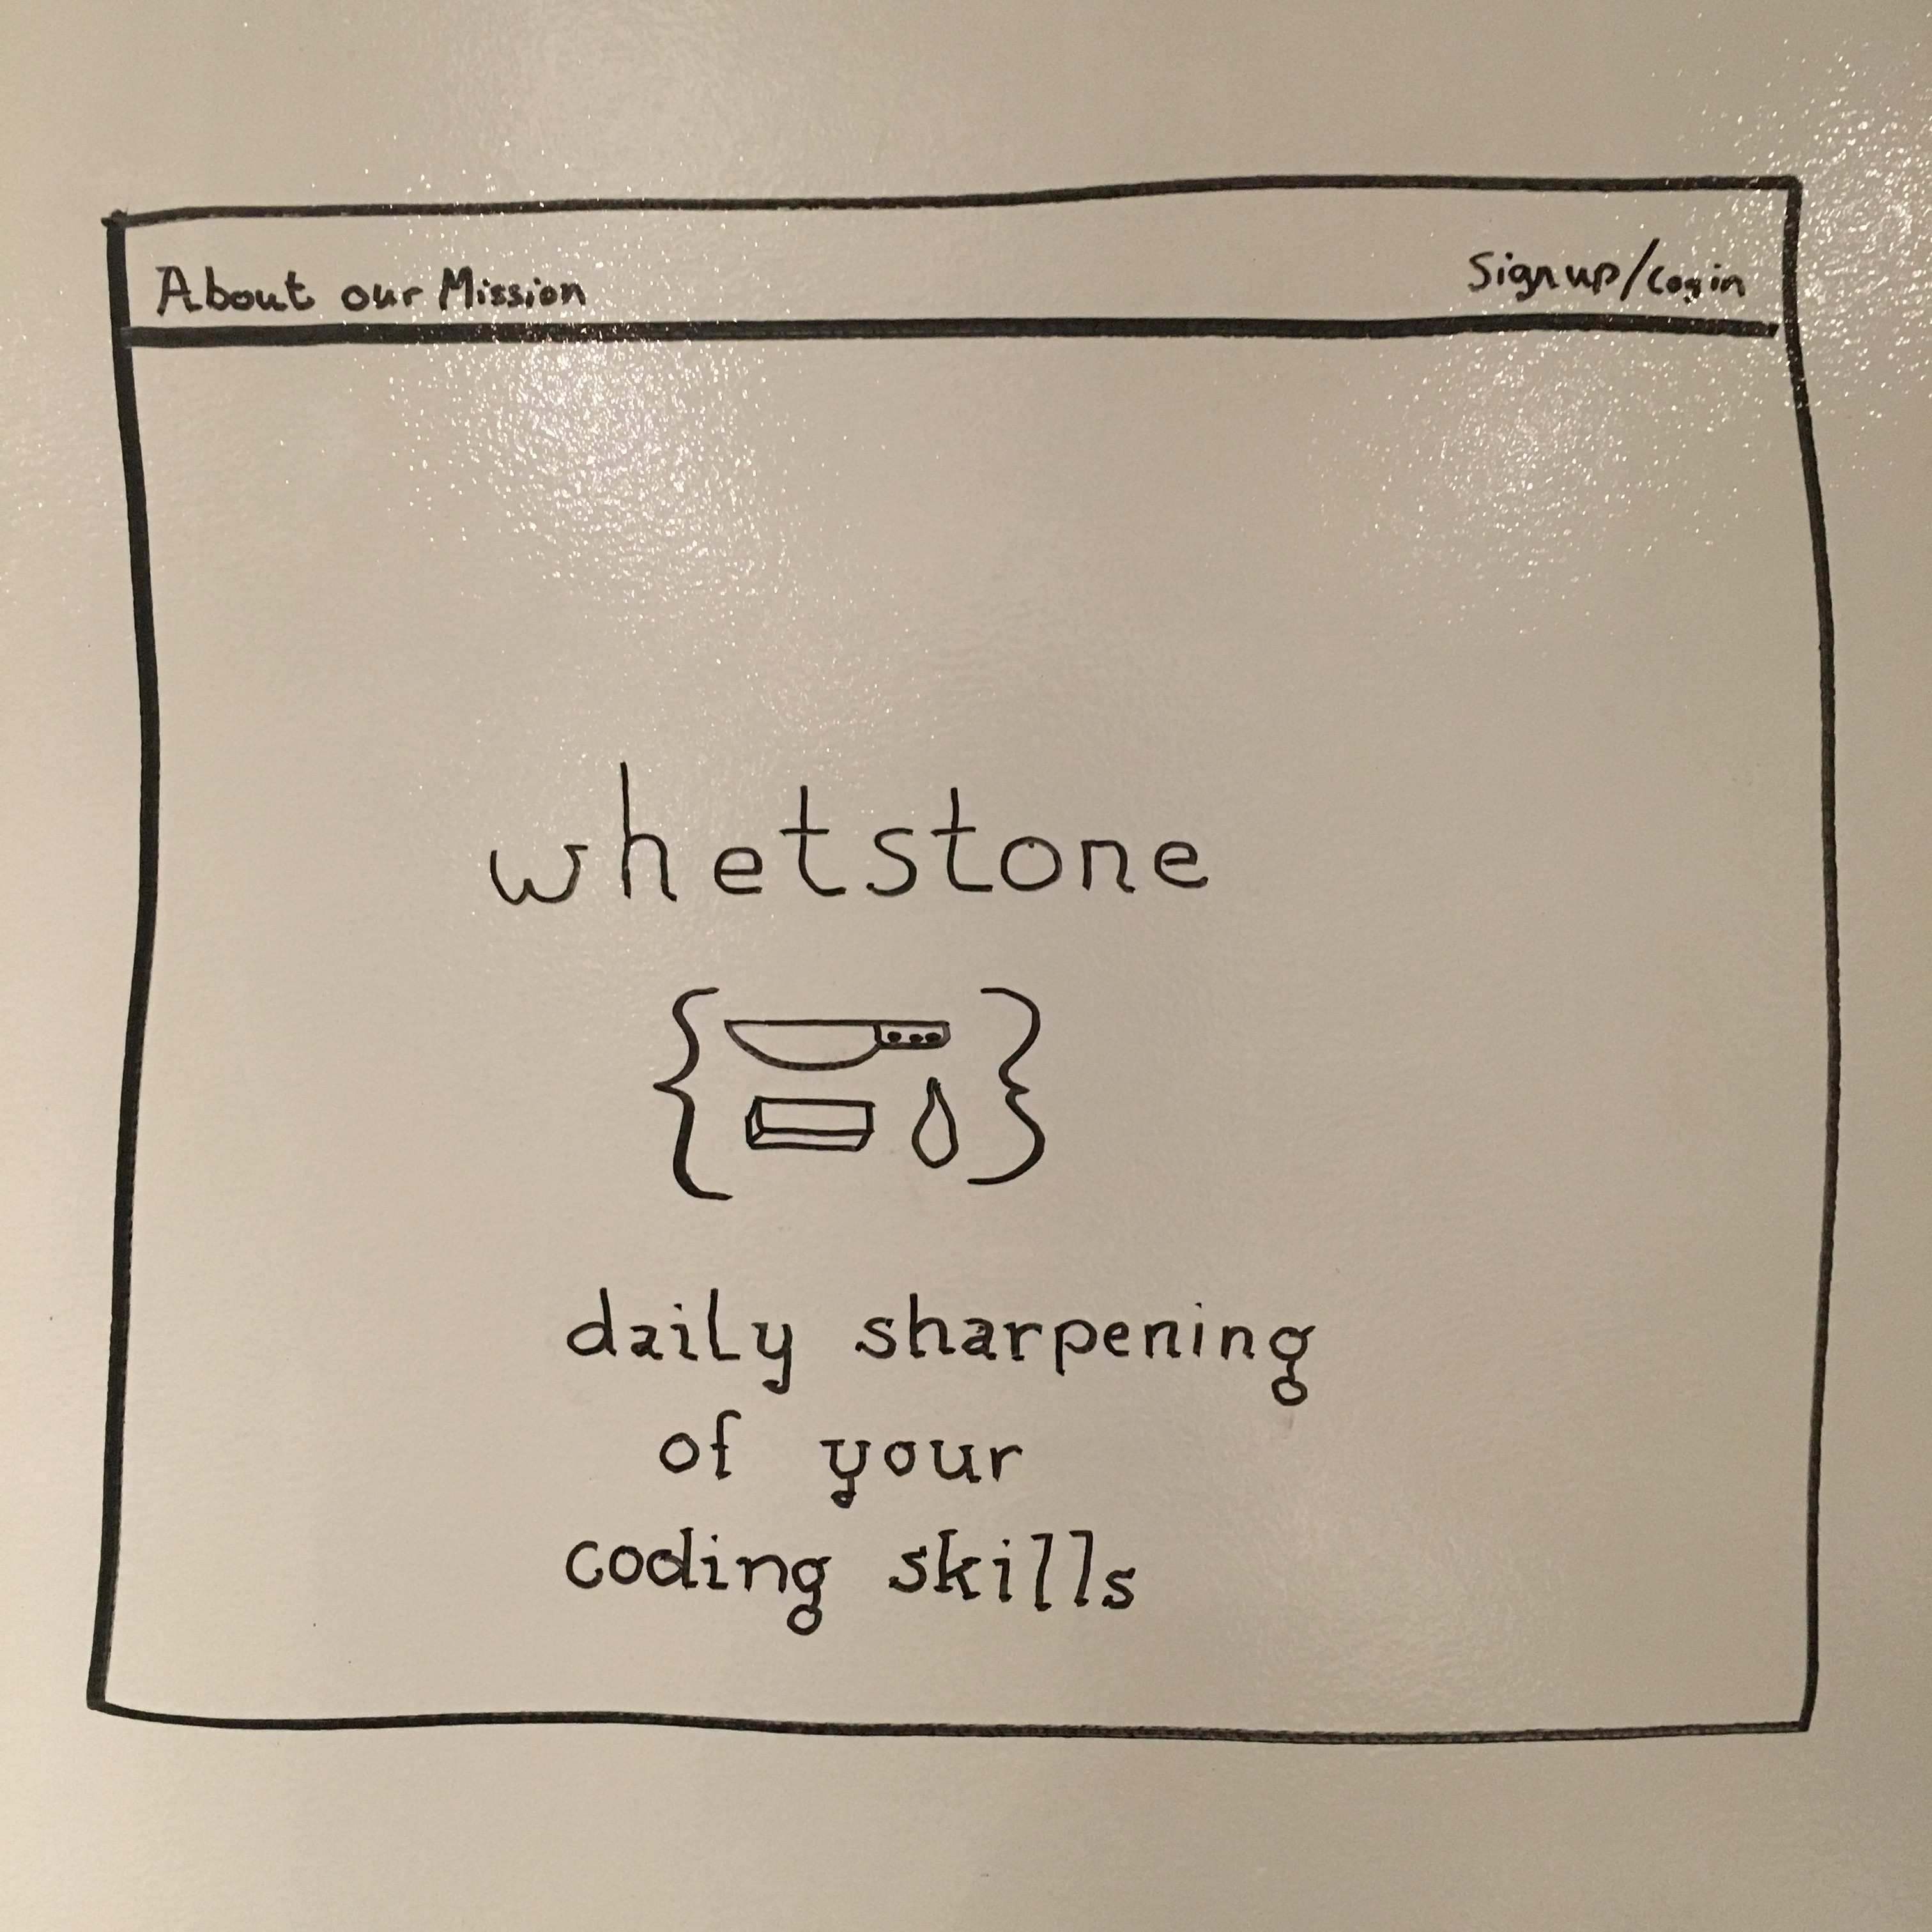 About our Mission
Signup/Login
whetstone
{ }
daily sharpening
of your
coding skills